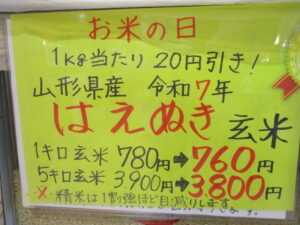 お米の日
1kg当たり 20円引き!
山形県産 令和7年
はえぬき 玄米
1キロ玄米 780円➡760円
5キロ玄米 3.900円➡3.800円
※精米は1割強ほど目減りします。